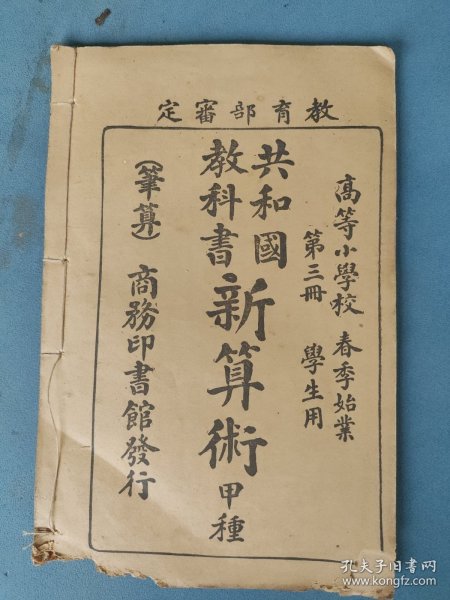 教育部審定
高等小學校 春季始業
第三冊 學生用
共和國
教科書
新算術
甲種
(筆算) 商務印書館發行
孔夫子旧书网
www.kongfz.com